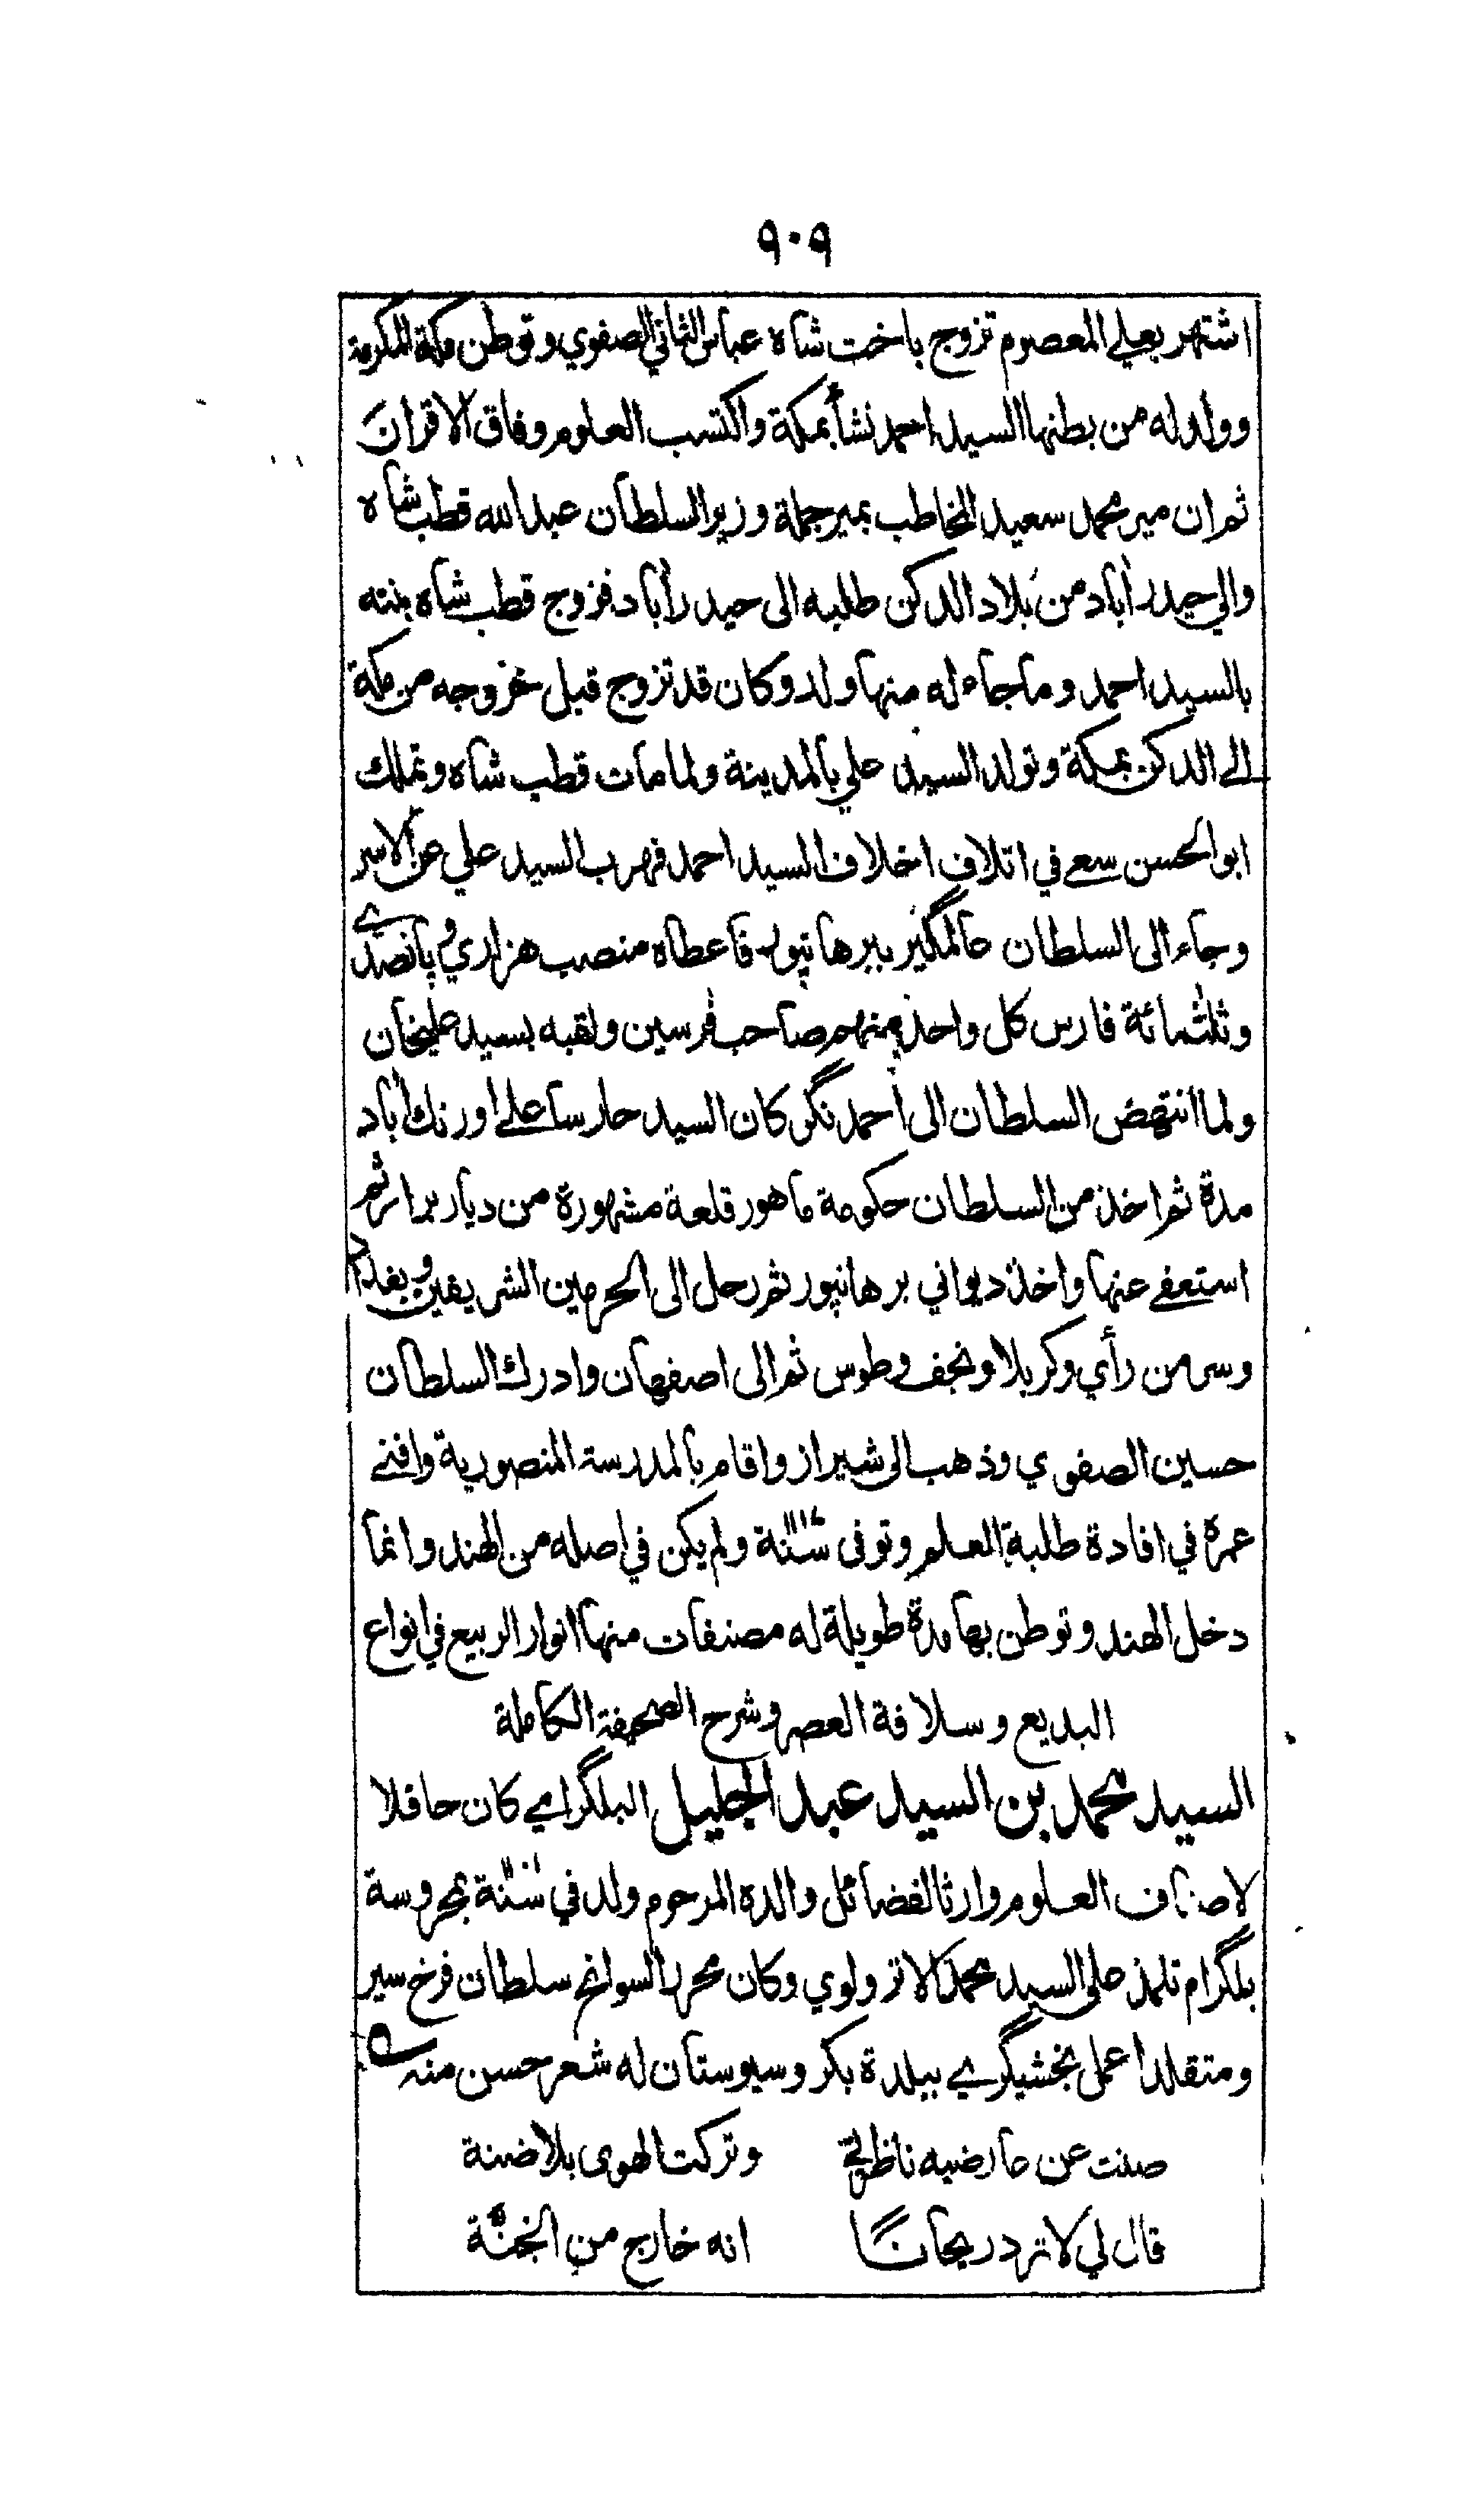 ٩٠٩
اشتهر بعلي المعصوم تزوج باخت شاه عباس الثاني الصفوي وتوطن مكة المكرمة
وولد له من بطنها السيد احمد نشأ بمكة واكتسب العلوم وفاق الاقران
ثم ان مير محمد سعيد المخاطب بمير جملة وزير السلطان عبد الله قطب شاه
والي حيدر آباد من بلاد الدكن طلبه الى حيدر آباد فزوج قطب شاه بنته
بالسيد احمد وما جاء له منها ولد وكان قد تزوج قبل خروجه من مكة
الے الدكن بمكة وتولد السيد علي بالمدينة ولما مات قطب شاه وتملك
ابو الحسن سعے في اتلاف اخلاف السيد احمد فهرب السيد علي عن الاسر
وجاء الى السلطان عالمگير ببرهانپور فاعطاه منصب هزاري و پانصدے
وثلثمائة فارس كل واحد منهم صاحب فرسين ولقبه بسيد عليخان
ولما انتهض السلطان الى احمد نگر كان السيد حارسا علے اورنك آباد
مدة ثم اخذ من السلطان حكومة ماهور قلعة مشهورة من ديار برار ثم
استعفے عنها واخذ ديواني برهانپور ثم رحل الى الحرمين الشريفين وبغداد
وسر من رأي وكربلا ونجف وطوس ثم الى اصفهان وادرك السلطان
حسين الصفوي وذهب الى شيراز واقام بالمدرسة المنصورية وافنے
عمره في افادة طلبة العلم وتوفى سنة ولم يكن في اصله من الهند وانما
دخل الهند وتوطن بها مدة طويلة له مصنفات منها انوار الربيع في انواع
البديع وسلافة العصر وشرح الصحيفة الكاملة
السيد محمد بن السيد عبد الجليل البلگرامے كان حافلا
لاصناف العلوم وارثا لفضائل والده المرحوم ولد في سنة بمحروسة
بلگرام تلمذ على السيد محمد الاترولوي وكان محررا لسوانح سلطان فرخ سير
ومتقلدا عمل بخشيگرے ببلدة بكر وسيوستان له شعر حسن منه
صنت عن عارضيه ناظرتي وتركت الهوى بلا ضنة
قال لي لا ترد ريحانا انه خارج من الجنة